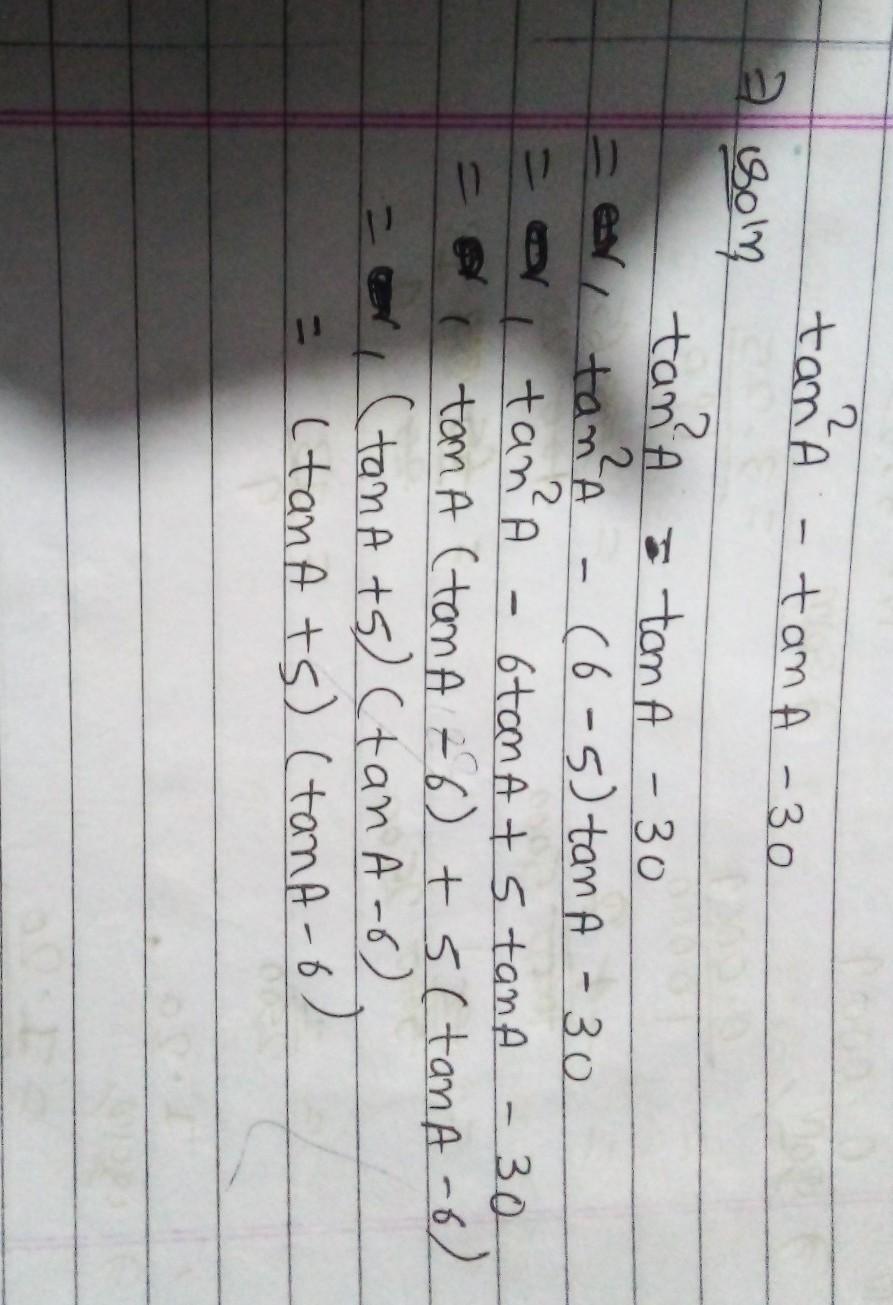 tan²A - tanA - 30
⇒ Soln,
tan²A - tanA - 30
= or, tan²A - (6 - 5) tanA - 30
= or, tan²A - 6tanA + 5 tanA - 30
= or, tanA (tanA - 6) + 5 (tanA - 6)
= or, (tanA + 5) (tanA - 6)
= (tanA + 5) (tanA - 6)